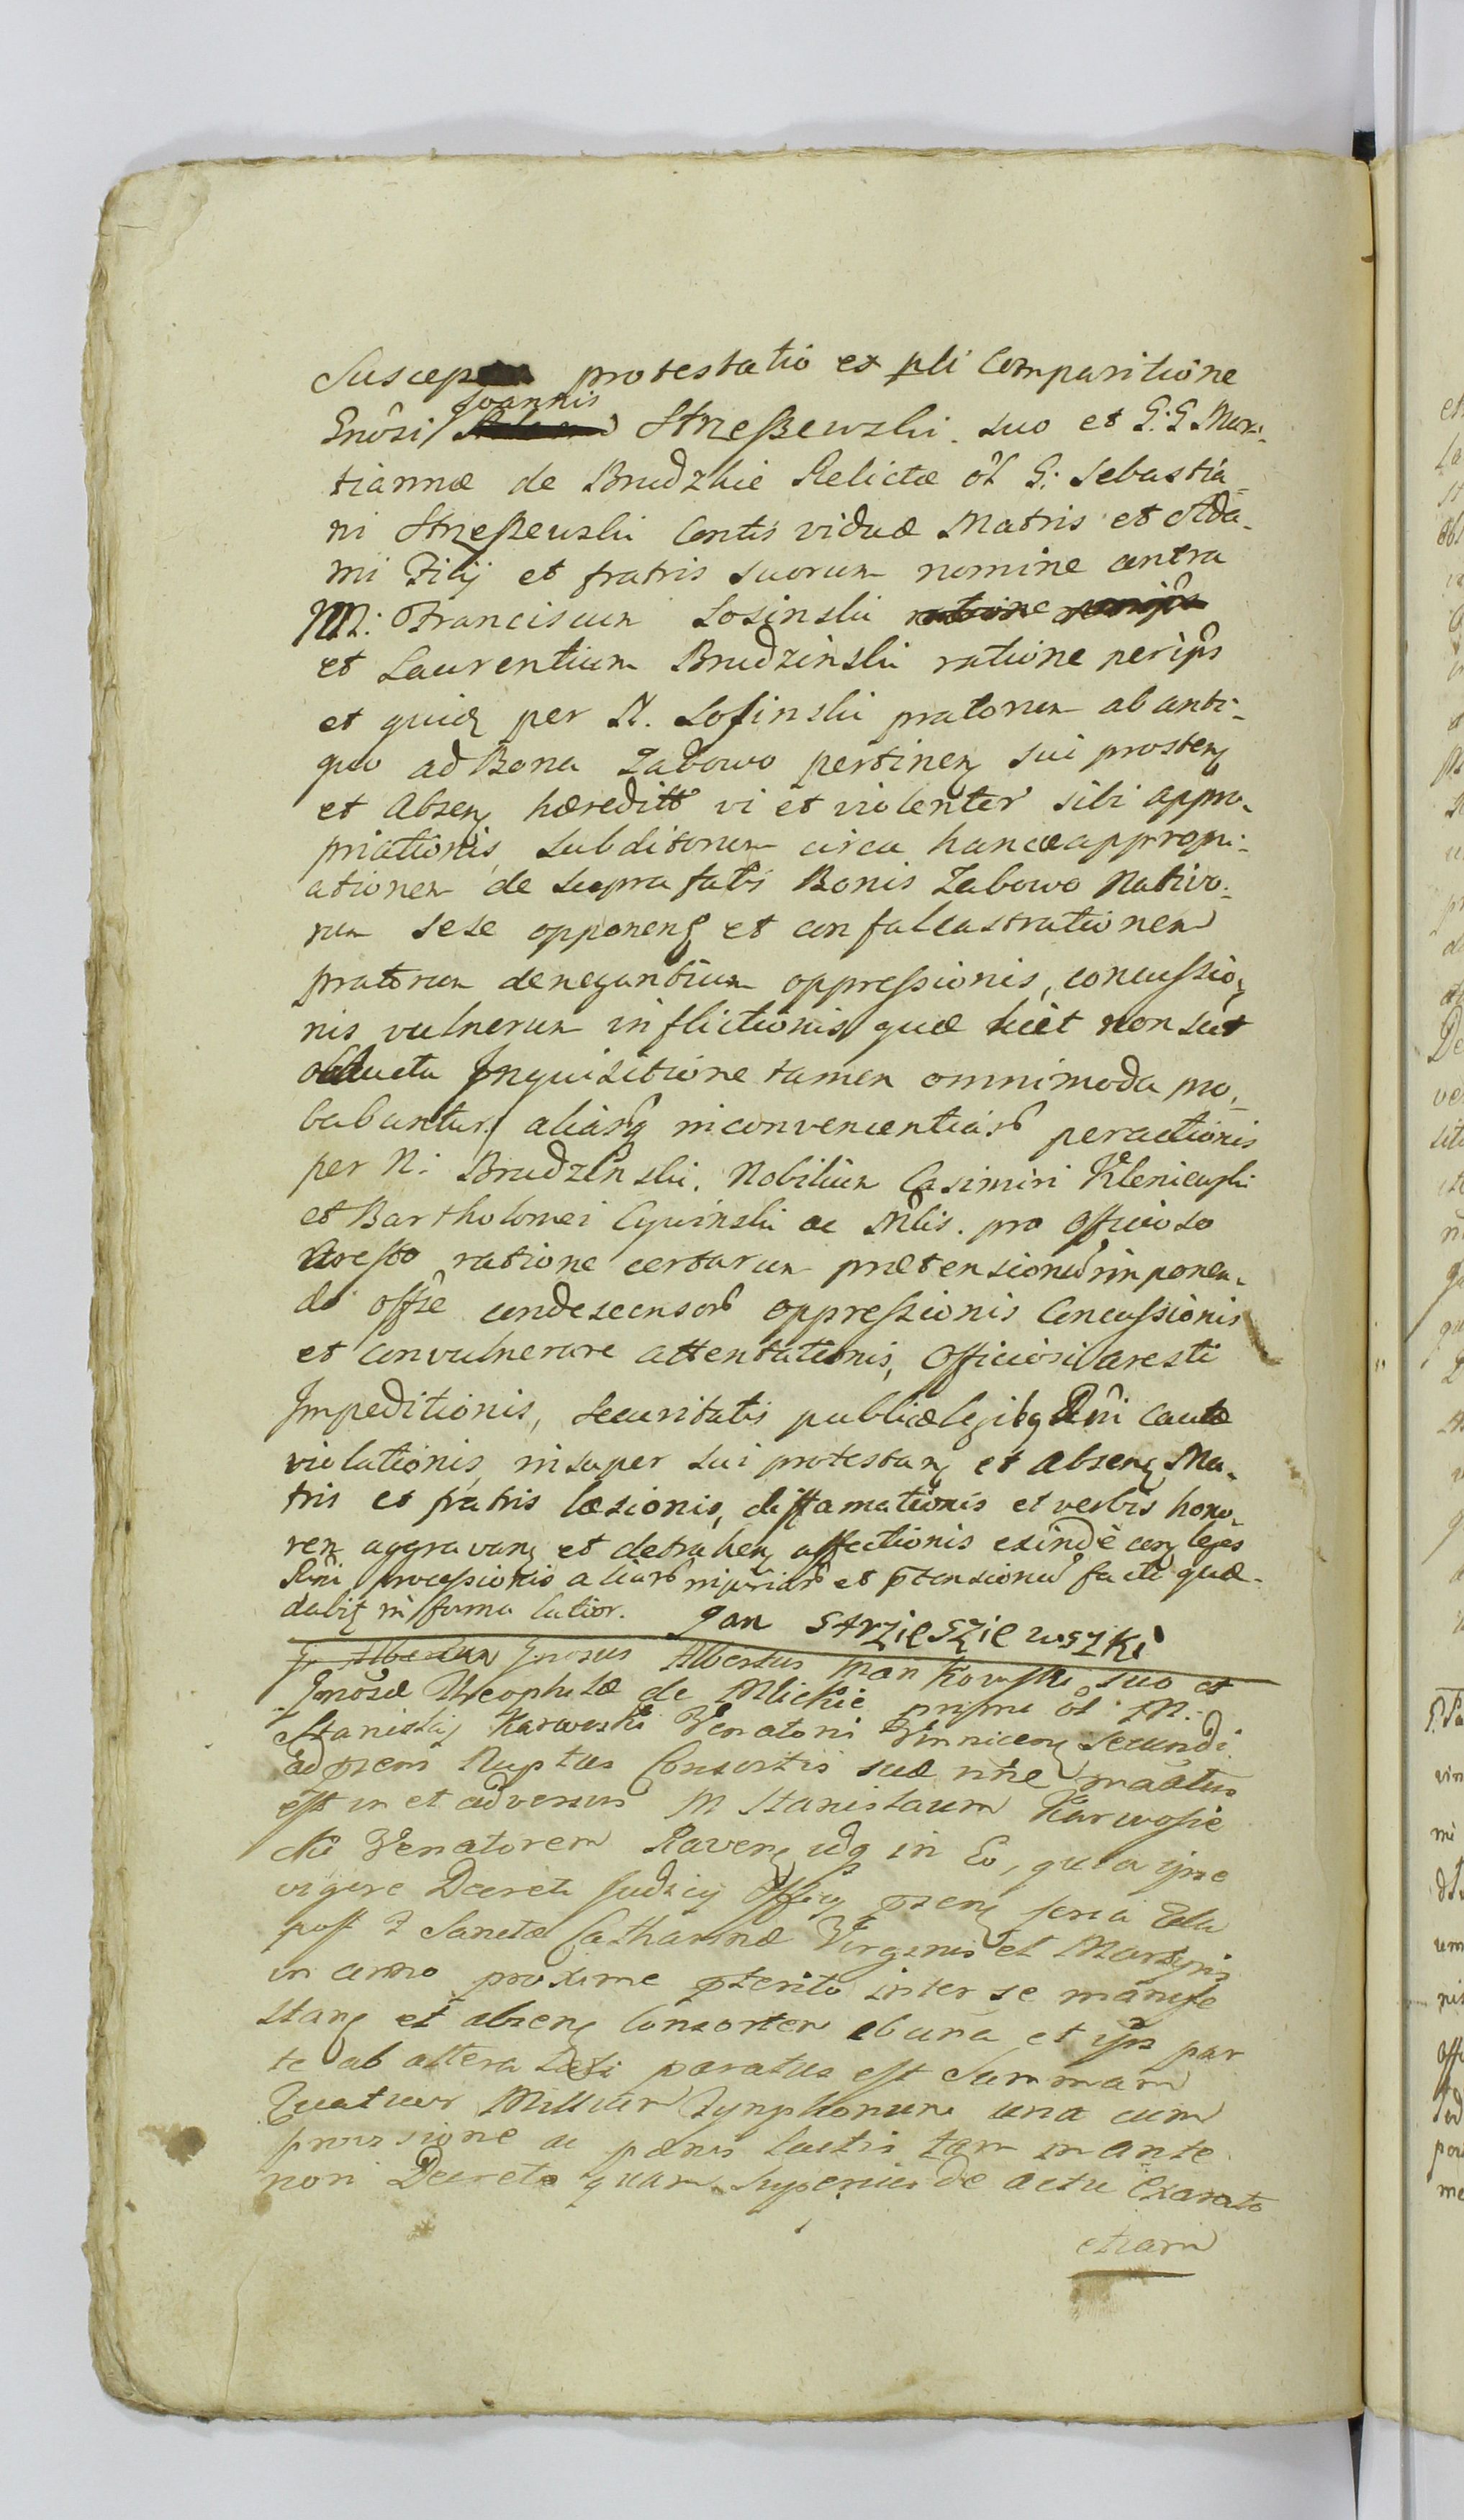 Suscep protestatio ex pli Comparitione
Gnôsi Joannis Strzeßewski suo et G: G Mar-
tiannæ de Brudzkie Relictæ ol G: Sebastia-
ni Strzeßewski Contis viduæ Matris et Ada-
mi Filij et fratris suorum nomine contra
M: Franciscum Losinski ratione
et Laurentium Brudzinski ratione per ips
et quid per N. Losinski pratorum ab anti-
quo ad Bona Zabowo pertinen sui prosten
et Absen hæreditt vi et violenter sibi appro-
priationis, subditorum circa hancce appropri-
ationem de supra fatis Bonis Zabowo Nativo-
rum sese opponen et confalcastrationem
pratorum denegantium oppressionis, concussio-
nis vulnerum inflictionis quæ licèt non sut
obducta Inquisitione tamen omnimoda pro-
babuntur, aliarq inconvenientiar peractionis
per N: Brudzinski. Nobilium Casimiri Klenieuski
et Bartholomei Cywinski ac Mlis. pro Officioso
Aresto ratione certarum prætensionu imponen-
do offse condescensor oppressionis Concussionis
et convulnerare attentationis, Officiosi aresti
Impeditionis, securitatis publicæ legibq Rni cautæ
violationis, insuper sui protestan et absen Ma-
tris et fratris læsionis, diffamationis et verbis hono-
rem aggravan et detrahen affectionis exindè con leges
Rni processionis aliar injuriar et ptensionu facti quæ-
dabit in forma latior. Jan Strzieszziewszki
Gnosus Albertus Mankowski suo et
Gnosæ Theophilæ de Mlickie primi ol M.
Stanislaj Karwoski Venatori Winnicen secundi
ad psens Nuptus Consortis suæ nne mastus
est in et adversus M Stanislaum Karwosie
cki Venatorem Raven idq in Eo, quia ipse
vigore Decreti Judicij Officij psen feria 2da
post F Sanctæ Catharinæ Virginis et Martyris
in anno proxime pterito inter se manife
stan et absen Consortem ab una et ips par
te ab altera lati paratus est Summam
Quatuor Millium Tynphonum una cum
provisione ac pænis luctis tam in ante
riori Decreto quam superius de actu Exarato
etiam